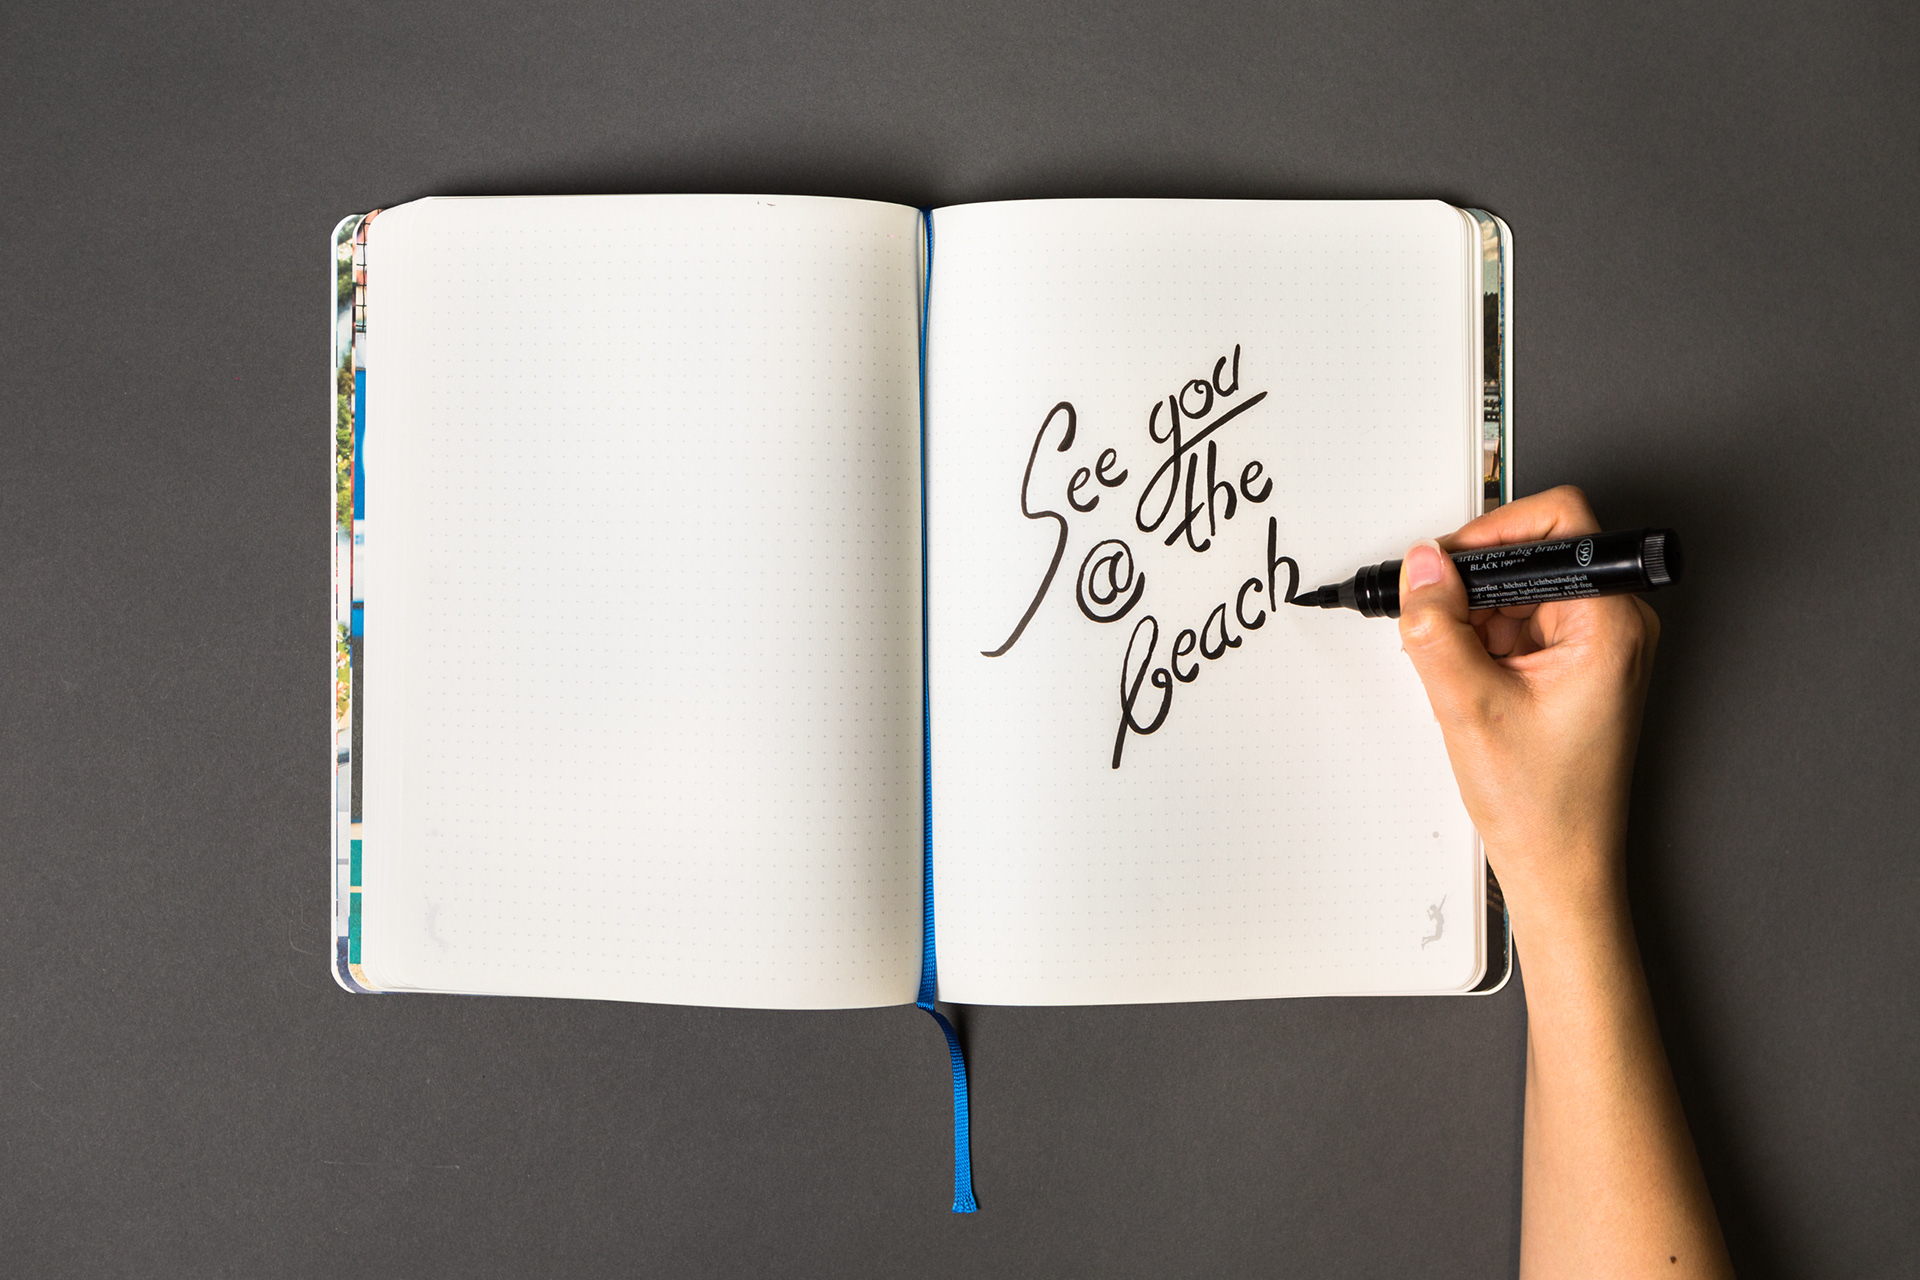 See you
@ the
beach
artist pen »big brush«
BLACK 199***
199
- höchste Lichtbeständigkeit
- maximum lightfastness - acid-free
- excellente résistance à la lumière